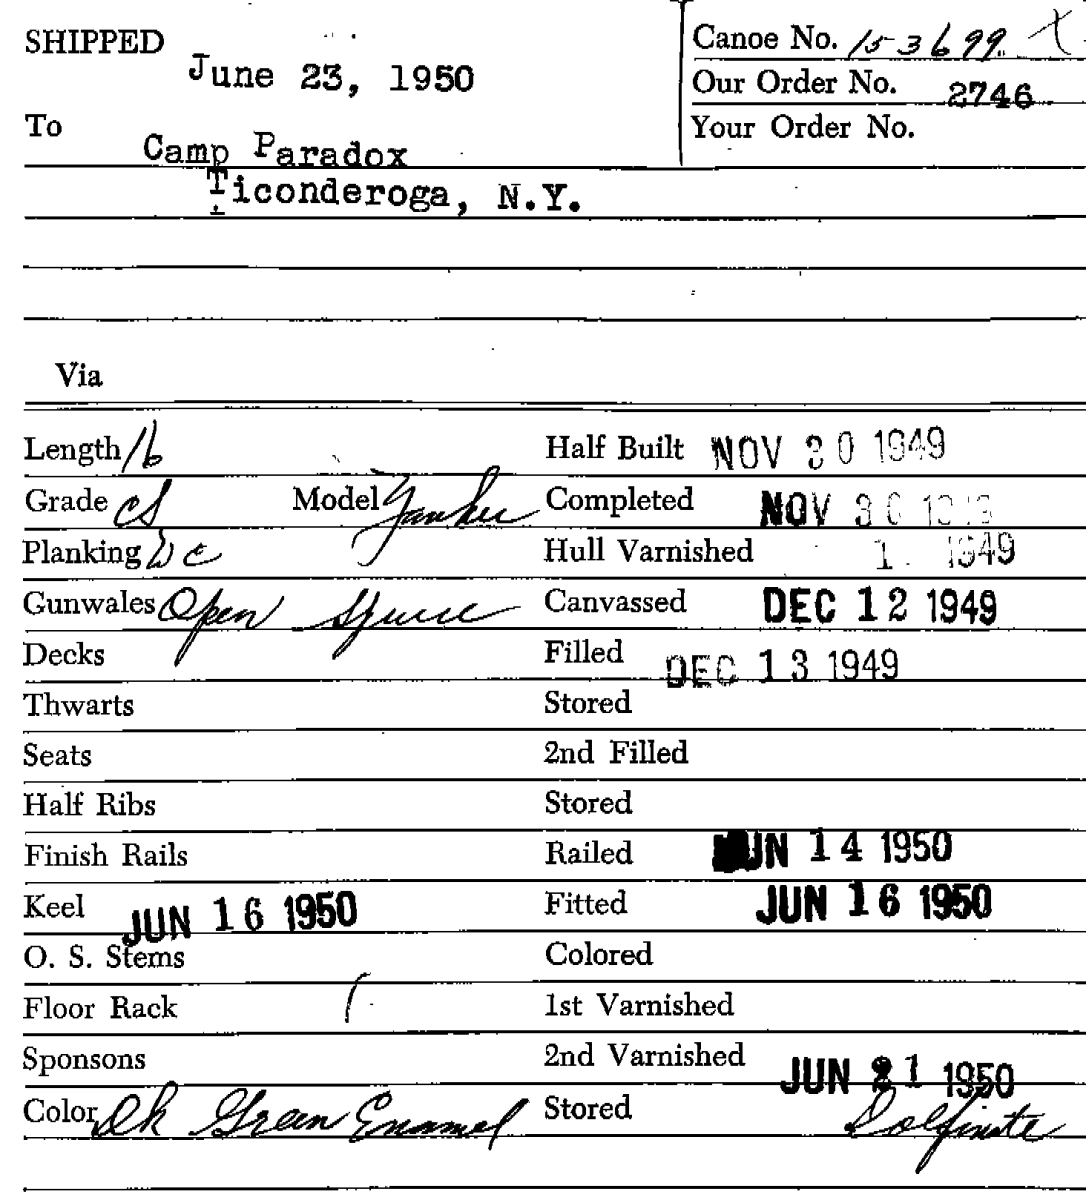 SHIPPED June 23, 1950
Canoe No. 153699
Our Order No. 2746
To Camp Paradox
Your Order No.
Ticonderoga, N.Y.
Via
Length 16
Half Built NOV 30 1949
Grade CS Model Yankee
Completed NOV 30 1949
Planking WC
Hull Varnished 1 1949
Gunwales Open Spruce
Canvassed DEC 12 1949
Decks
Filled DEC 13 1949
Thwarts
Stored
Seats
2nd Filled
Half Ribs
Stored
Finish Rails
Railed JUN 14 1950
Keel JUN 16 1950
Fitted JUN 16 1950
O. S. Stems
Colored
Floor Rack
1st Varnished
Sponsons
2nd Varnished JUN 21 1950
Color Dk Green Enamel
Stored Dolfinite